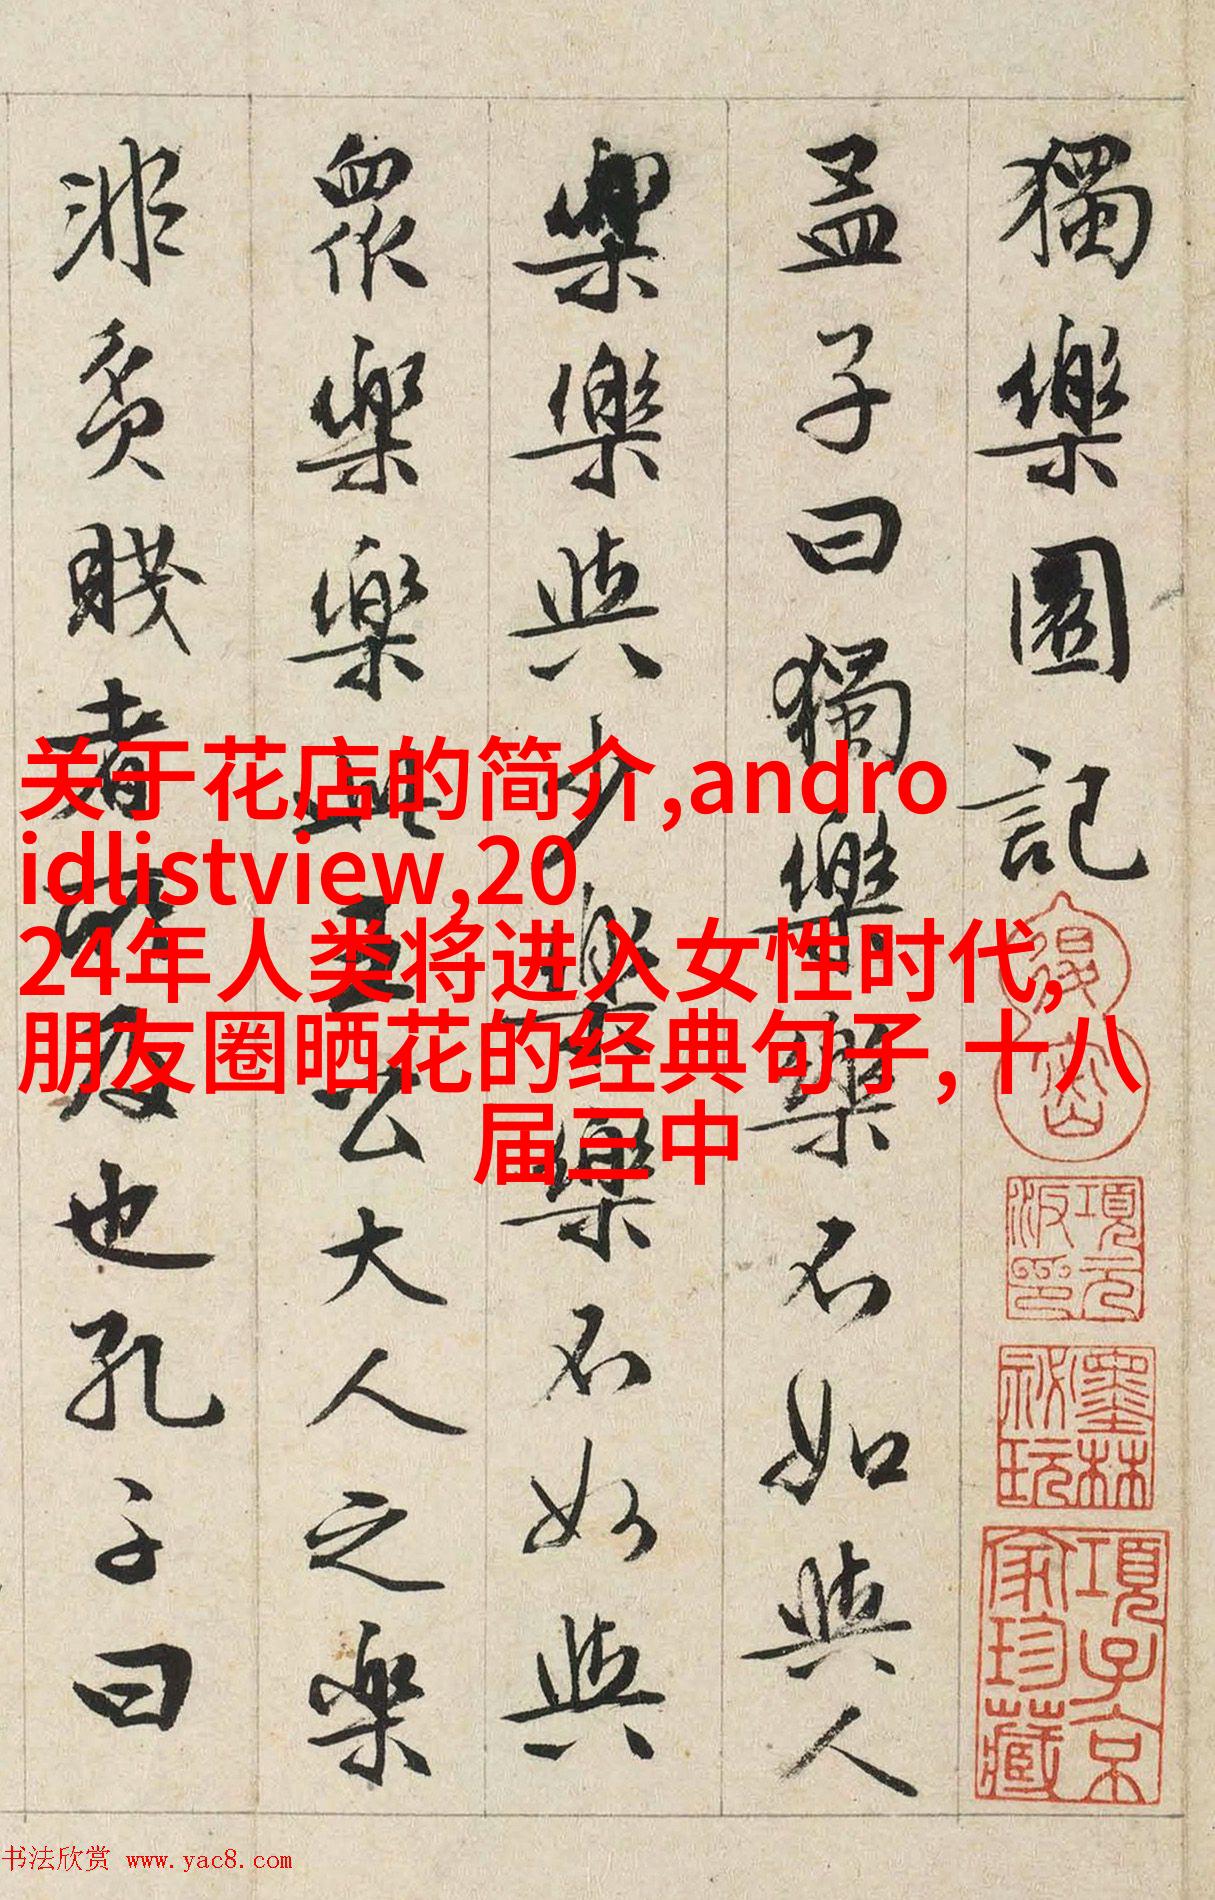 獨樂園記
孟子曰獨樂樂不如與人
樂樂與少樂樂不如與
衆樂樂此王公大人之樂
非貧賤者所及也孔子曰
项元汴印
墨林祕玩
項子京家珍藏
关于花店的简介,andro
idlistview,20
24年人类将进入女性时代,
朋友圈晒花的经典句子,十八
届三中
书法欣赏 www.yac8.com